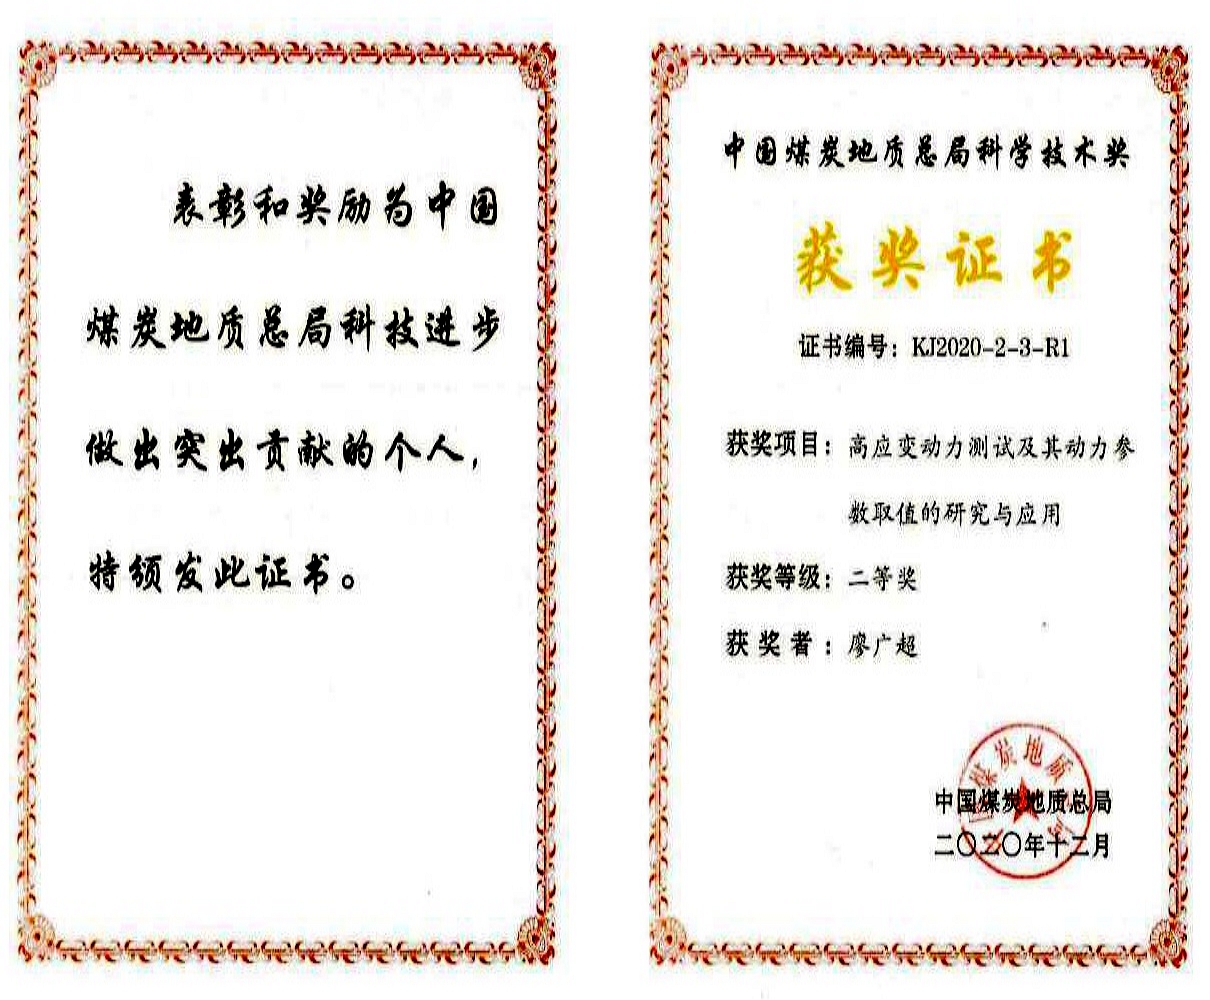 表彰和奖励为中国
煤炭地质总局科技进步
做出突出贡献的个人，
特颁发此证书。
中国煤炭地质总局科学技术奖
获奖证书
证书编号：KJ2020-2-3-R1
获奖项目：高应变动力测试及其动力参
数取值的研究与应用
获奖等级：二等奖
获奖者：廖广超
煤炭地质
中国煤炭地质总局
二〇二〇年十二月